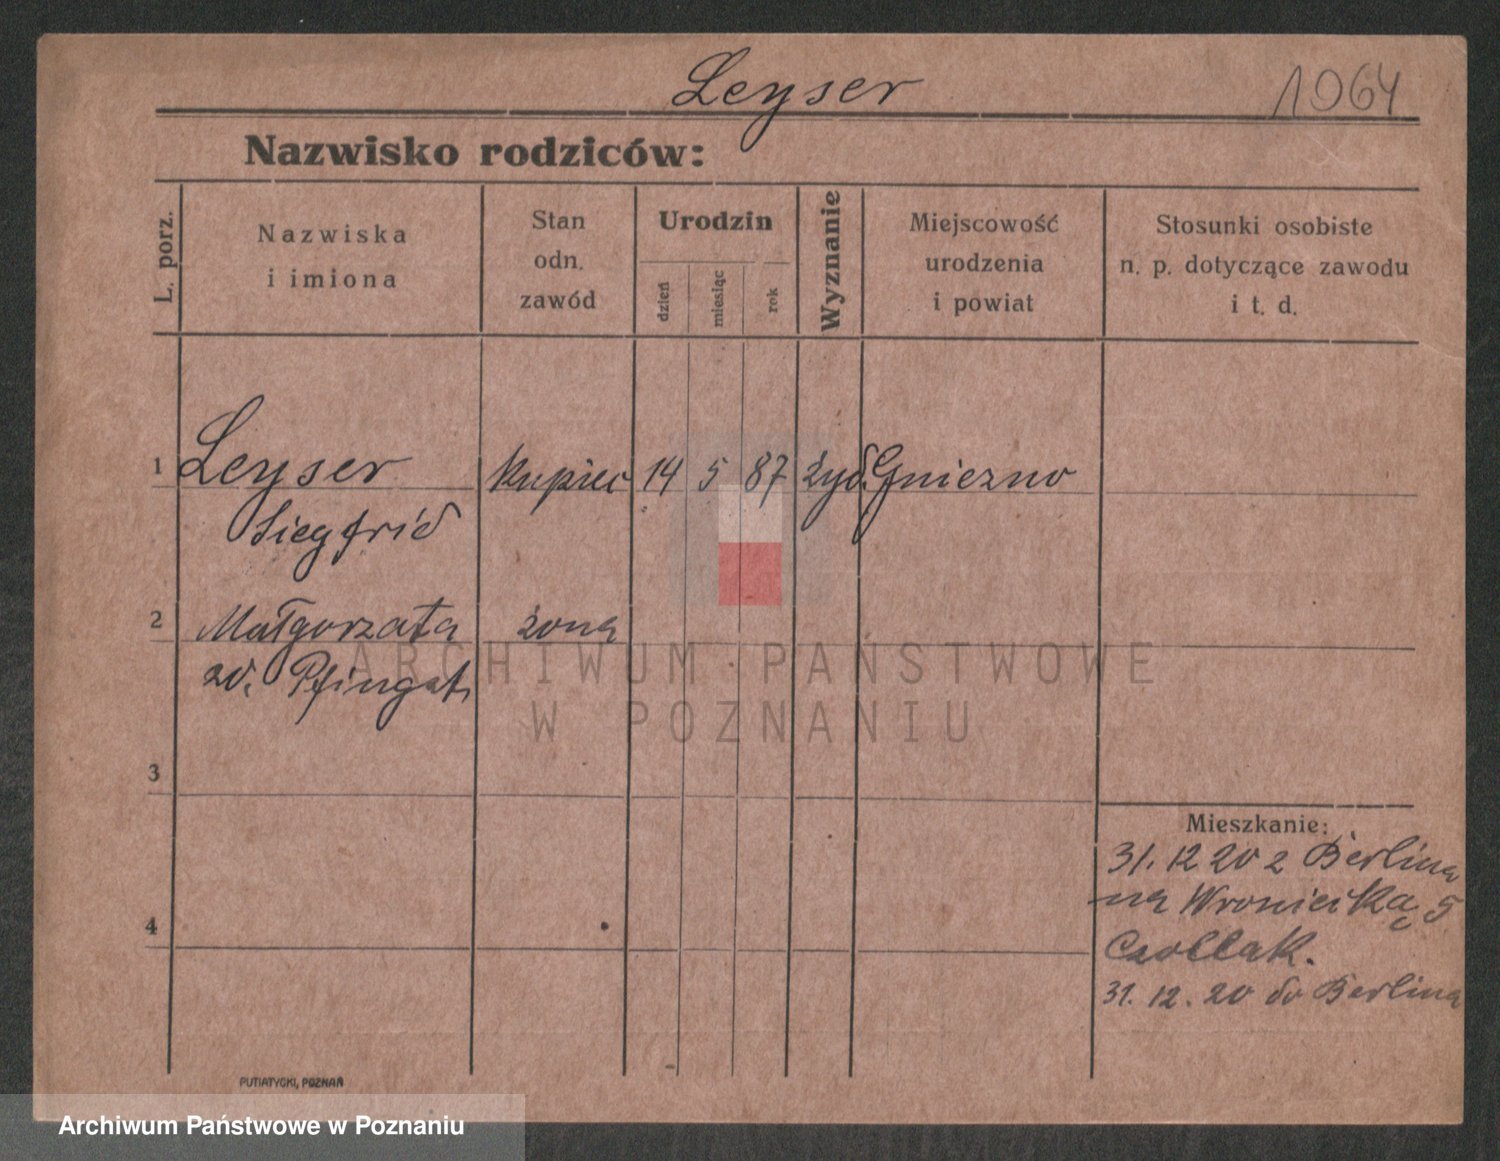 Leyser
1964
Nazwisko rodziców:
L. porz.
Nazwiska
i imiona
Stan
odn.
zawód
Urodzin
dzień
miesiąc
rok
Wyznanie
Miejscowość
urodzenia
i powiat
Stosunki osobiste
n. p. dotyczące zawodu
i t. d.
1 Leyser Kupiec 14 5 87 żyd. Gniezno
Siegfrid
2 Małgorzata żona
zd. Pfingst
ARCHIWUM PAŃSTWOWE
W POZNANIU
3
Mieszkanie:
31. 12 20 z Berlina
na Wroniecką 5
Czollak.
4
31. 12. 20 do Berlina
PUTIATYCKI, POZNAŃ
Archiwum Państwowe w Poznaniu